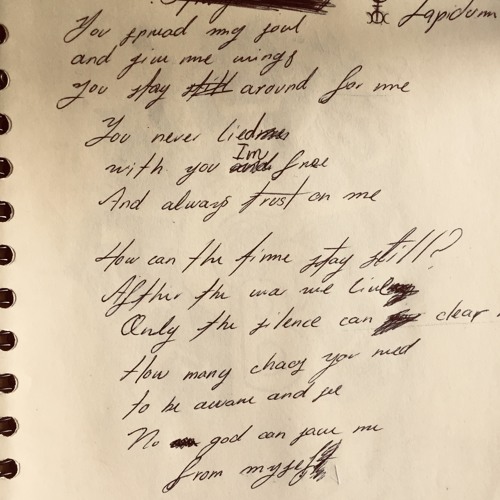 Lapidum
You spread my soul
and give me wings
You stay still around for me
You never lied
with you I'm free
And always trust on me
How can the time stay still?
After the war we live
Only the silence can clear
How many chaos you need
to be aware and see
No god can save me
from myself